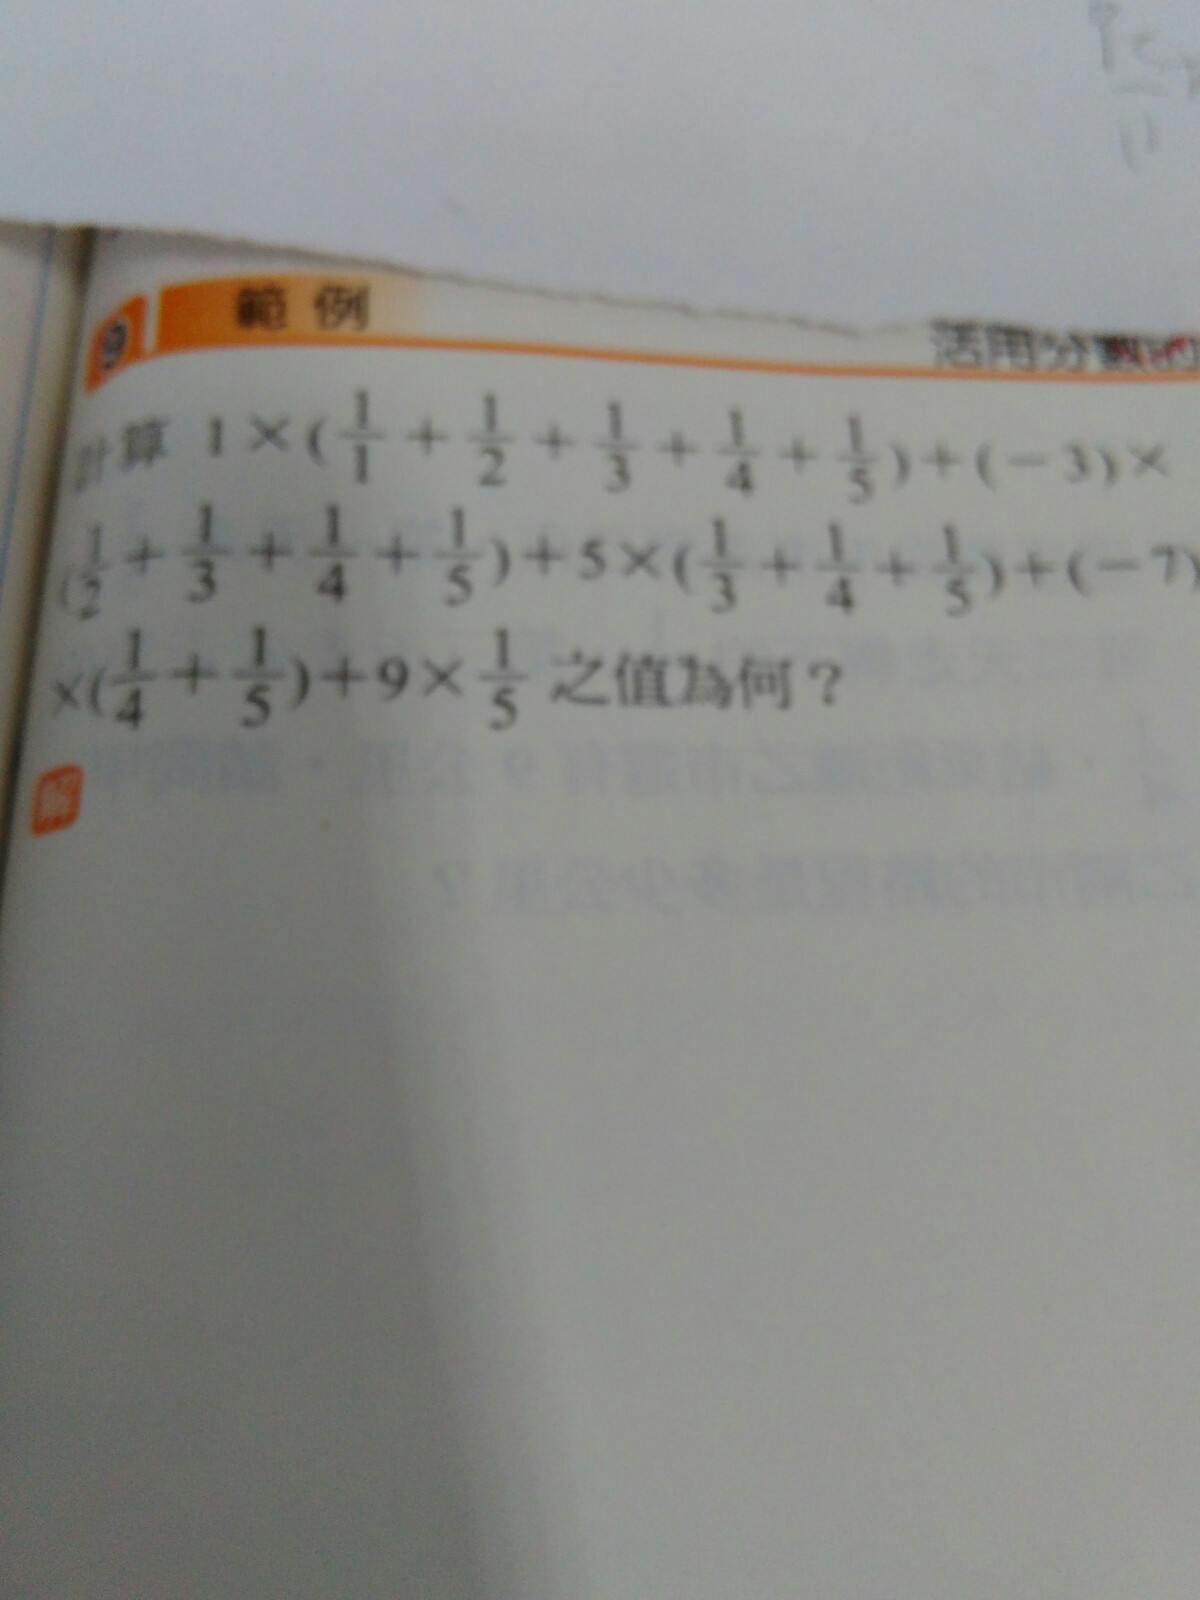 9 範例 活用分數的
計算 1×(1/1+1/2+1/3+1/4+1/5)+(-3)×
(1/2+1/3+1/4+1/5)+5×(1/3+1/4+1/5)+(-7)
×(1/4+1/5)+9×1/5 之值為何？
解